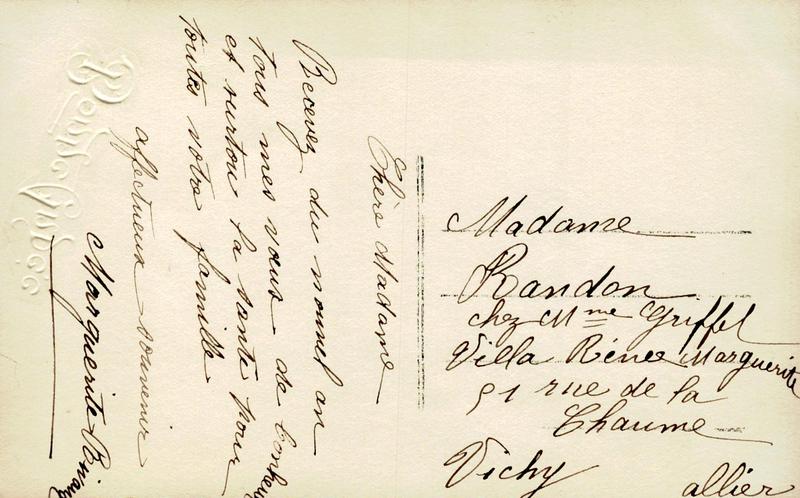 Chère Madame
Recevez du nouvel an
tous mes vœux de bonheur
et surtou la santé pour
toutes votre famille
affectueux souvenir
Marguerite
Madame
Randon
chez Mme Griffet
Villa Rénée Marguerite
51 rue de la
Chaume
Vichy
allier
Bonne Année